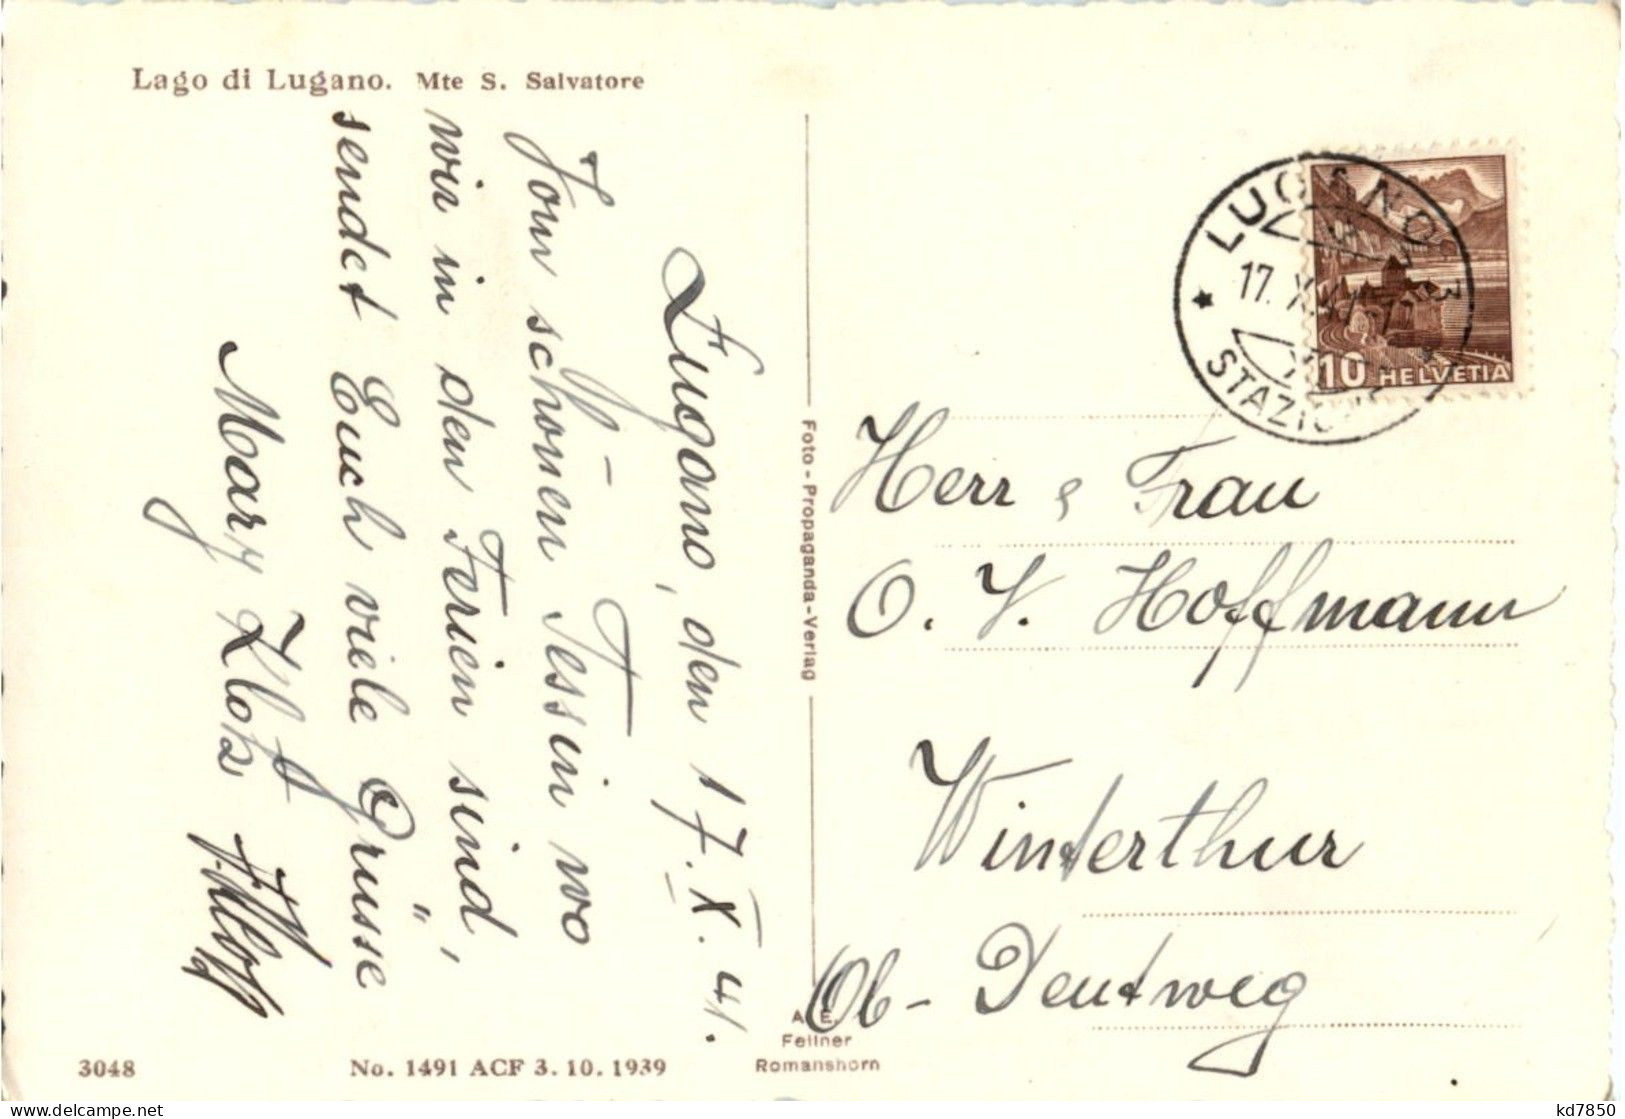 Lago di Lugano. Mte S. Salvatore
Lugano, den 17. X. 41.
Vom schönen Tessin wo
wir in den Ferien sind,
sendet Euch viele Grüsse
Mary Klotz
Foto-Propaganda-Verlag
A. E.
Fellner
Romanshorn
LUGANO 3
17. X. 41
STAZIONE
10 HELVETIA
Herr & Frau
O. V. Hoffmann
Winterthur
Ob-Deutweg
3048
No. 1491 ACF 3.10.1939
delcampe.net
kd7850